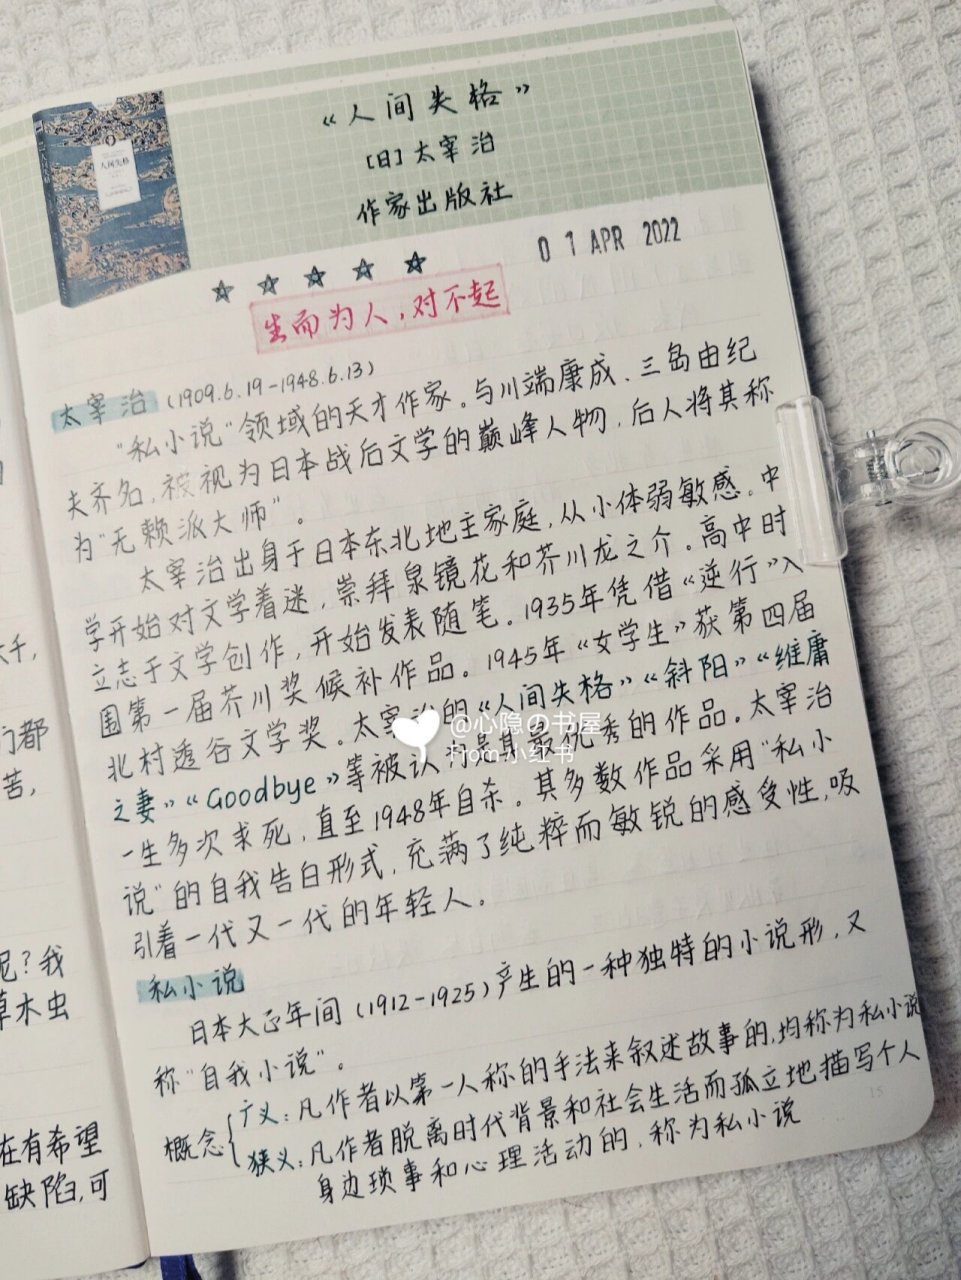 《人间失格》
[日]太宰治
作家出版社
人间失格
01 APR 2022
生而为人,对不起
太宰治(1909.6.19-1948.6.13)
"私小说"领域的天才作家。与川端康成、三岛由纪
夫齐名,被视为日本战后文学的巅峰人物,后人将其称
为"无赖派大师"。
太宰治出身于日本东北地主家庭,从小体弱敏感。中
学开始对文学着迷,崇拜泉镜花和芥川龙之介。高中时
立志于文学创作,开始发表随笔。1935年凭借《逆行》入
围第一届芥川奖候补作品。1945年《女学生》获第四届
北村透谷文学奖。太宰治的《人间失格》《斜阳》《维庸
之妻》《Goodbye》等被认为是其最优秀的作品。太宰治
一生多次求死,直至1948年自杀。其多数作品采用"私小
说"的自我告白形式,充满了纯粹而敏锐的感受性,吸
引着一代又一代的年轻人。
私小说
日本大正年间(1912-1925)产生的一种独特的小说形,又
称"自我小说"。
概念
广义:凡作者以第一人称的手法来叙述故事的,均称为私小说
狭义:凡作者脱离时代背景和社会生活而孤立地描写个人
身边琐事和心理活动的,称为私小说
15
@心隐の书屋
from 小红书
门都
苦,
呢?我
草木虫
在有希望
缺陷,可